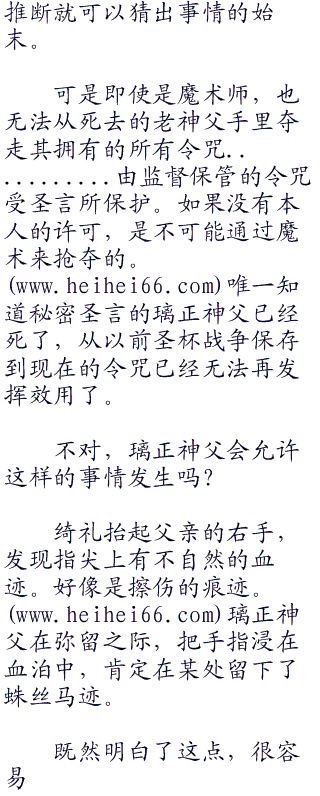 推断就可以猜出事情的始
末。
可是即使是魔术师，也
无法从死去的老神父手里夺
走其拥有的所有令咒..
.........由监督保管的令咒
受圣言所保护。如果没有本
人的许可，是不可能通过魔
术来抢夺的。
(www.heihei66.com)唯一知
道秘密圣言的璃正神父已经
死了，从以前圣杯战争保存
到现在的令咒已经无法再发
挥效用了。
不对，璃正神父会允许
这样的事情发生吗？
绮礼抬起父亲的右手，
发现指尖上有不自然的血
迹。好像是擦伤的痕迹。
(www.heihei66.com)璃正神
父在弥留之际，把手指浸在
血泊中，肯定在某处留下了
蛛丝马迹。
既然明白了这点，很容
易